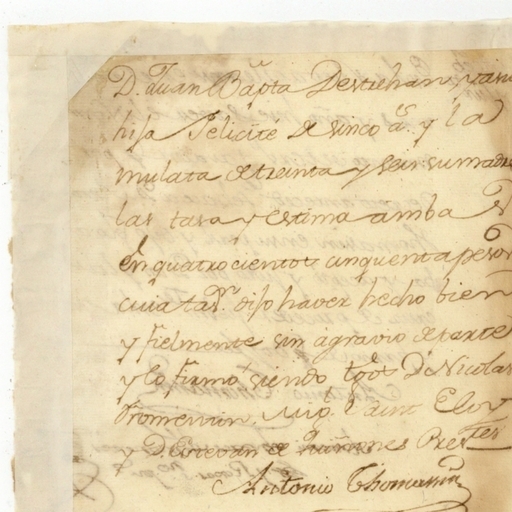 D.n Juan Bap.ta Destrehan, y a su
hija Felicite de sinco a.s y la
mulata de treinta y seis su madre
las tasa y estima ambas
en quatrocientos cinquenta pesos
cuia tas.n dijo haver hecho bien
y fielmente sin agravio de parte
y lo firmó siendo tgos D.n Nicolas
Fromentin. Mig.l Saint Eloy
y D. Estevan de Quiñones Pres.tes
Antonio Thomassin